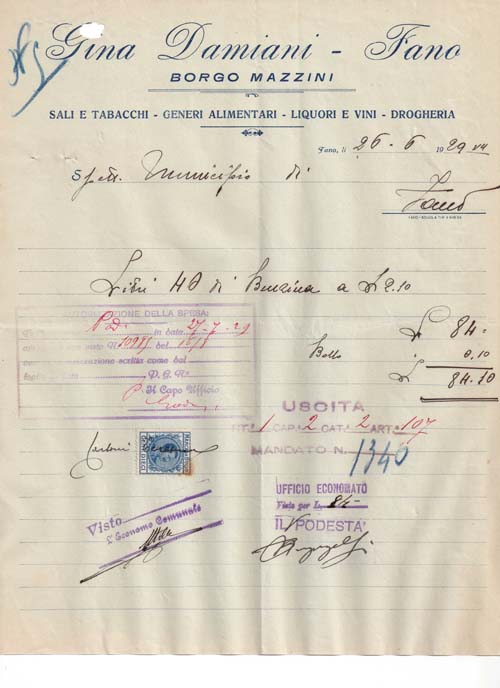 Gina Damiani - Fano
BORGO MAZZINI
SALI E TABACCHI - GENERI ALIMENTARI - LIQUORI E VINI - DROGHERIA
Fano, li 26 - 6 1929 VII
Spett. Municipio di
Fano
Litri 40 di Benzina a £ 2.10
£ 84.-
Bollo 0.10
£ 84.10
AUTORIZZAZIONE DELLA SPESA:
in data 27-7-29
N. del
scelta come dal
P. G. N.
P. Il Capo Ufficio
USCITA
TIT. 1 CAP. 2 CAT. 2 ART. 107
MANDATO N. 1340
UFFICIO ECONOMATO
Visto per L. 84-
IL PODESTA'
Visto
L'Economo Comunale